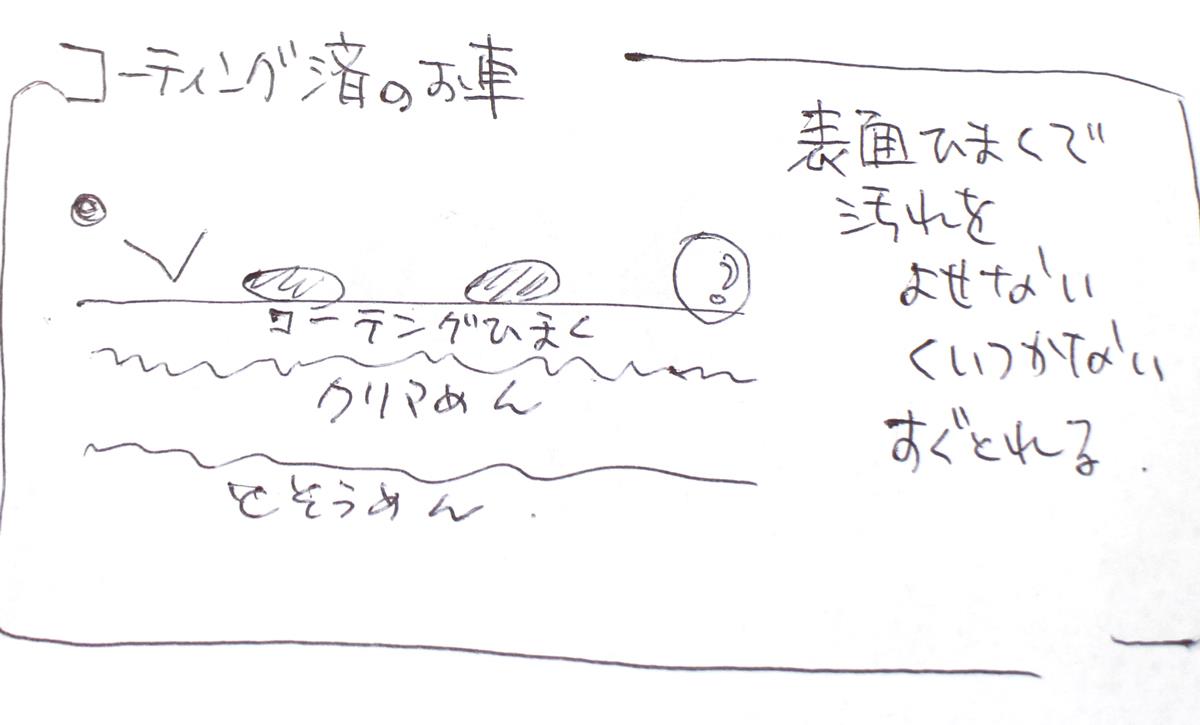 コーティング済のお車
表面ひまくで
汚れを
よせない
くいつかない
すぐとれる
コーテングひまく
クリアめん
とそうめん